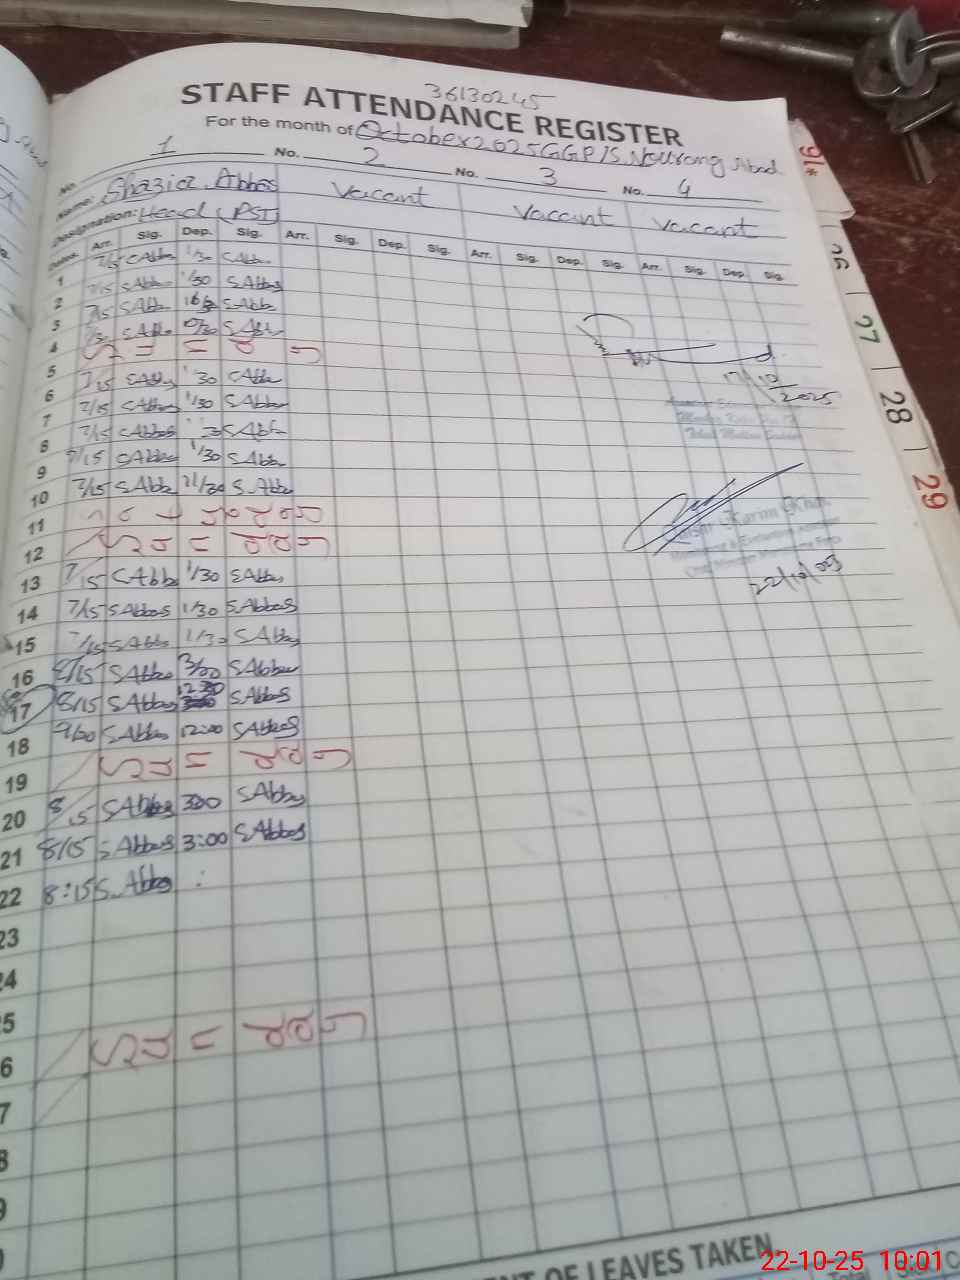 36130245
STAFF ATTENDANCE REGISTER
For the month of October 2025 GGP/S Nourang Abad
No. 1 No. 2 No. 3 No. 4
Name: Shazia Abbas Vacant Vacant Vacant
Designation: Head (PST)
Dates. Arr. Sig. Dep. Sig. Arr. Sig. Dep. Sig. Arr. Sig. Dep. Sig. Arr. Sig. Dep. Sig.
1 7/15 SAbbas 1/30 SAbbas
2 7/15 SAbbas 1/30 SAbbas
3 7/15 SAbbas SAbbas
4 SAbbas SAbbas
5 SUNDAY
6 7/15 SAbbas 1/30 SAbbas
7 7/15 SAbbas 1/30 SAbbas
8 7/15 SAbbas SAbbas
9 7/15 SAbbas 1/30 SAbbas
10 7/15 SAbbas 11/30 SAbbas
11
12 SUNDAY
13 7/15 SAbbas 1/30 SAbbas
14 7/15 SAbbas 1/30 SAbbas
15 7/15 SAbbas 1/30 SAbbas
16 8/15 SAbbas 3/00 SAbbas
17 8/15 SAbbas 12:30 SAbbas
18 9/00 SAbbas 12:00 SAbbas
19 SUNDAY
20 8/15 SAbbas 300 SAbbas
21 8/15 SAbbas 3:00 SAbbas
22 8:15 S.Abbas :
23
24
5
6 SUNDAY
7
8
9
0
17/10/2025
Karim Khan
22/10/025
91*
26
27
28
29
NT OF LEAVES TAKEN
22-10-25 10:01